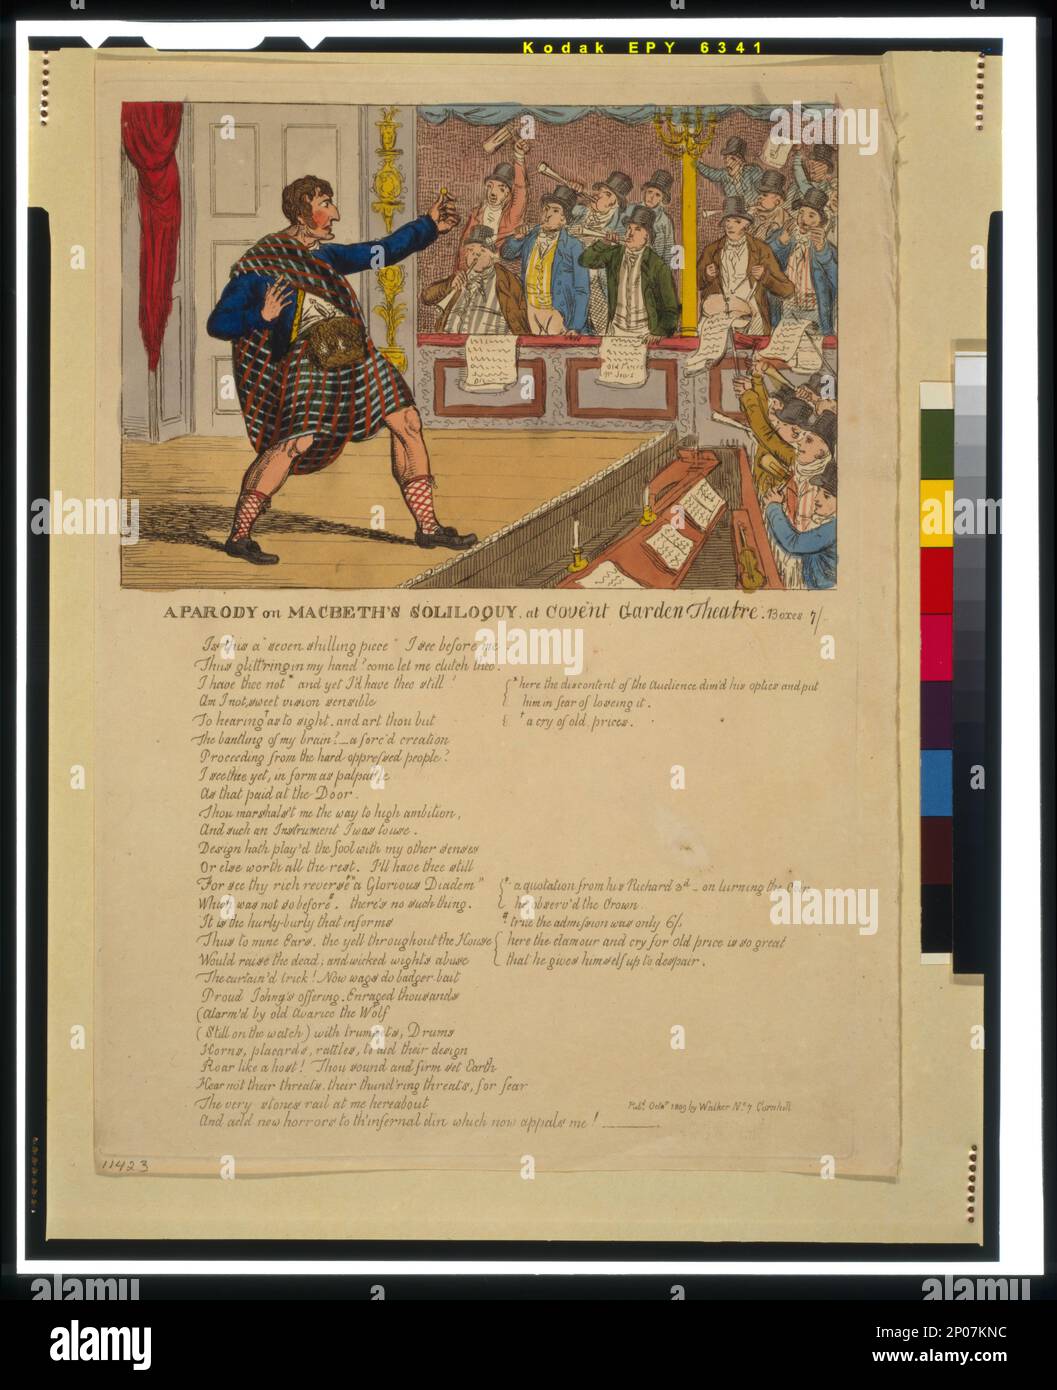 Kodak EPY 6341
Old Prices
A PARODY on MACBETH'S SOLILOQUY, at Covent Garden Theatre. Boxes 7/-
Is this a "seven shilling piece" I see before me
Thus glitt'ring in my hand? come let me clutch thee.
I have thee not* and yet I'd have thee still!
Am I not, sweet vision sensible
To hearing† as to sight, and art thou but
The bantling of my brain?—a forc'd creation
Proceeding from the hard oppressed people?
I see thee yet, in form as palpable
As that paid at the Door.
Thou marshals't me the way to high ambition,
And such an Instrument I was to use.
Design hath play'd the fool with my other senses
Or else worth all the rest. I'll have thee still
For see thy rich reverse "a Glorious Diadem"
Which was not so before. there's no such thing.
It is the hurly-burly that informs
Thus to mine Ears, the yell throughout the House
Would raise the dead; and wicked wights abuse
The curtain'd trick! Now wags do badger-bait
Proud Johny's offering. Enraged thousands
(Alarm'd by old Avarice the Wolf
(Still on the watch) with trumpets, Drums
Horns, placards, rattles, to aid their design
Roar like a host! Thou sound and firm set Earth
Hear not their threats, their thund'ring threats, for fear
The very stones rail at me hereabout
And add new horrors to th'infernal din which now appals me!
* here the discontent of the Audience dim'd his optics and put
him in fear of loseing it.
† a cry of old prices.
a quotation from his Richard 3d – on turning the Coin
he observ'd the Crown.
true the admission was only 6/.
here the clamour and cry for old price is so great
that he gives himself up to despair.
Pub. Octr 1809 by Walker No. 7 Cornhill
11423
alamy
Image ID: 2P07KNC
www.alamy.com